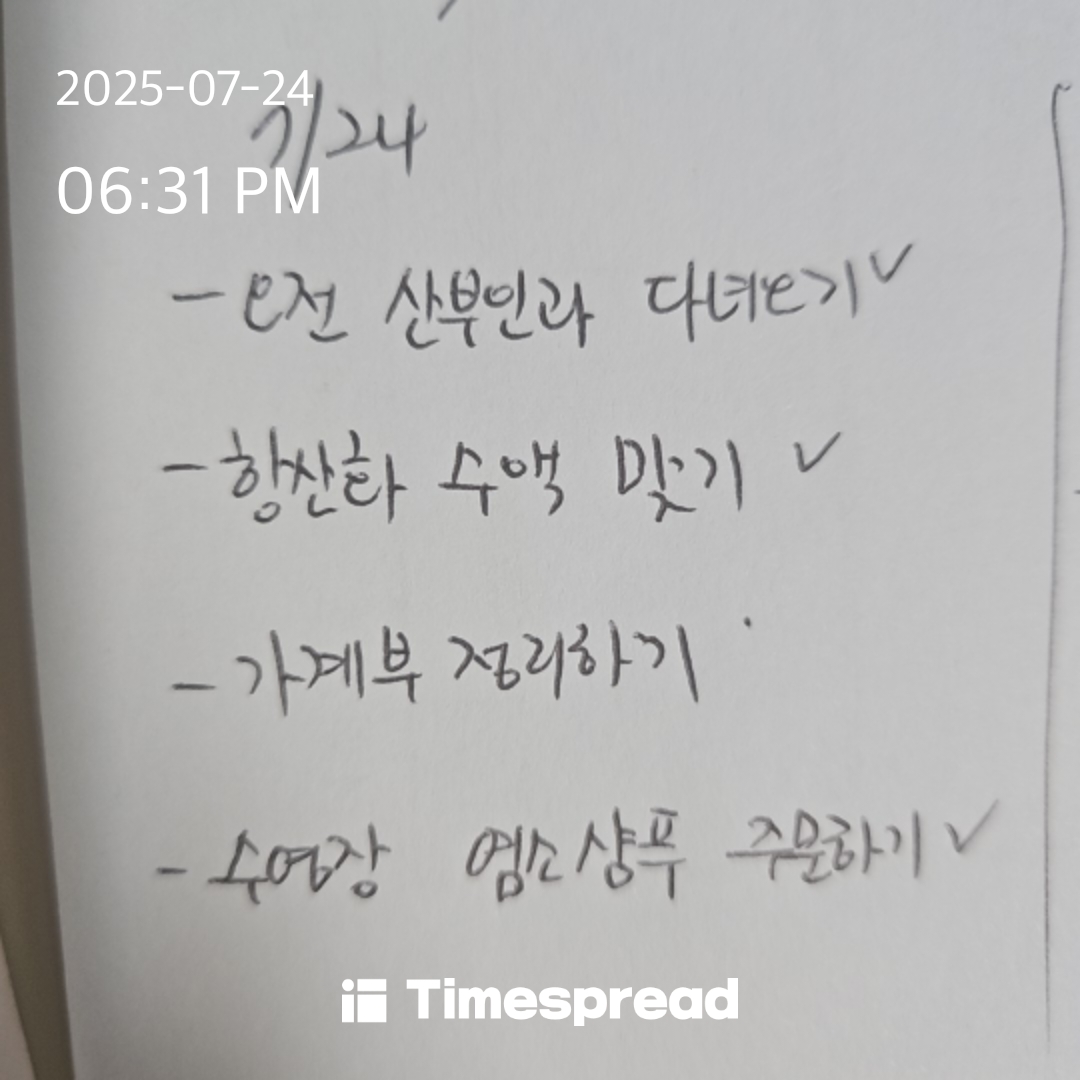 2025-07-24
7/24
06:31 PM
- 오전 산부인과 다녀오기 ✓
- 항산화 수액 맞기 ✓
- 가계부 정리하기
- 수영장 염소샴푸 주문하기 ✓
Timespread